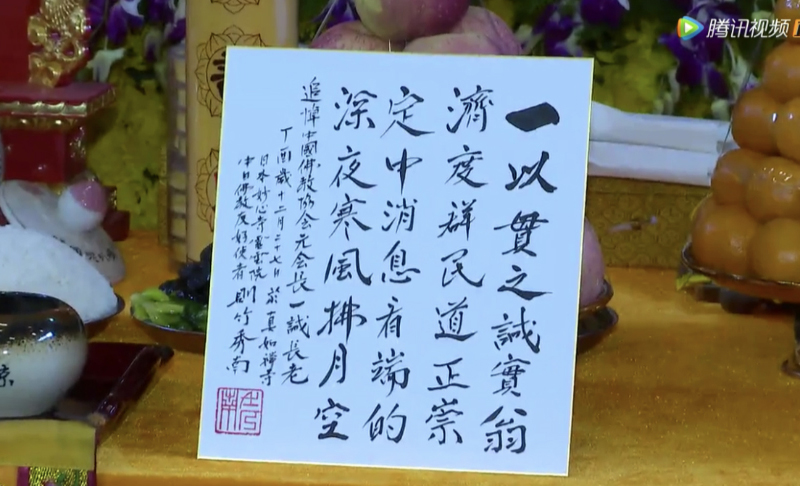 腾讯视频
一以貫之誠實翁
濟度群民道正崇
定中消息看端的
深夜寒風拂月空
追悼中國佛教協会元会長一誠長老
丁酉歲十二月二十七日 於真如禅寺
日本妙心寺靈雲院
中日佛教友好使者 則竹秀南